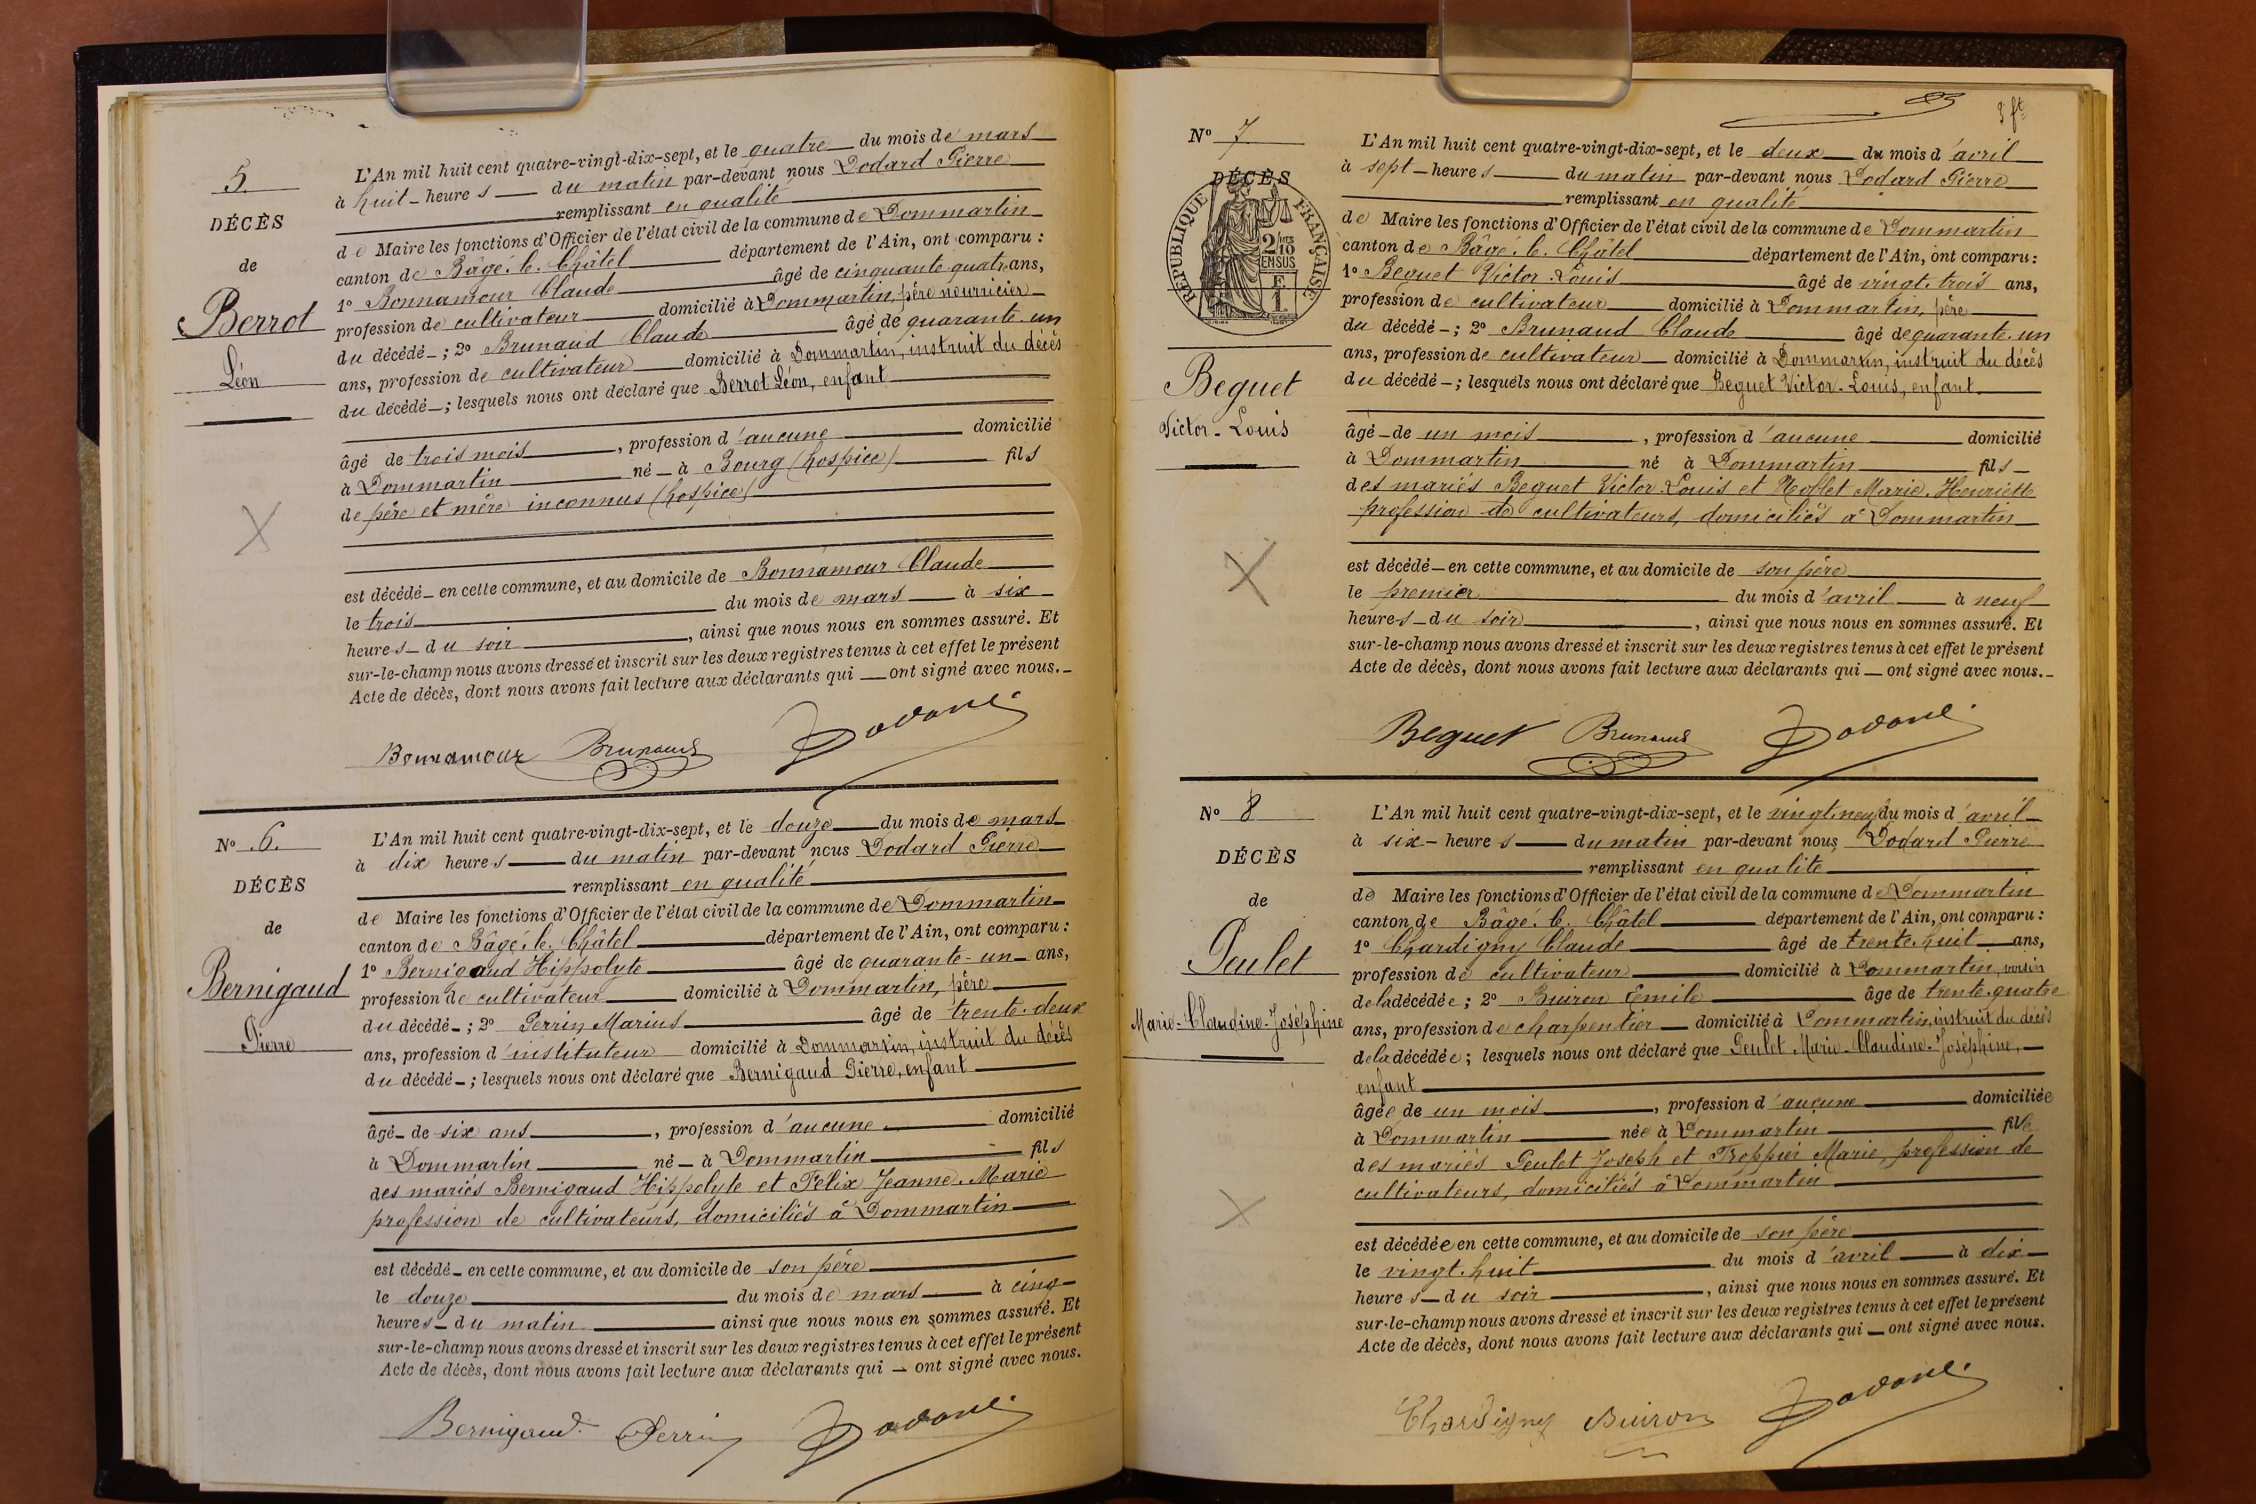 5
DÉCÈS
de
Berrot
Léon
L'An mil huit cent quatre-vingt-dix-sept, et le quatre du mois de mars
à huit heures du matin par-devant nous Dodard Pierre
remplissant en qualité
de Maire les fonctions d'Officier de l'état civil de la commune de Dommartin
canton de Bâgé-le-Châtel département de l'Ain, ont comparu :
1º Bonnamour Claude âgé de cinquante-quatre ans,
profession de cultivateur domicilié à Dommartin, père nourricier
du décédé ; 2º Brunaud Claude âgé de quarante-un
ans, profession de cultivateur domicilié à Dommartin, instruit du décès
du décédé ; lesquels nous ont déclaré que Berrot Léon, enfant
âgé de trois mois, profession d'aucune domicilié
à Dommartin né à Bourg (hospice) fils
de père et mère inconnus (hospice)
est décédé en cette commune, et au domicile de Bonnamour Claude
le trois du mois de mars à six
heures du soir, ainsi que nous nous en sommes assuré. Et
sur-le-champ nous avons dressé et inscrit sur les deux registres tenus à cet effet le présent
Acte de décès, dont nous avons fait lecture aux déclarants qui ont signé avec nous.
Bonnamour Brunaud Dodard
Nº 6.
DÉCÈS
de
Bernigaud
Pierre
L'An mil huit cent quatre-vingt-dix-sept, et le douze du mois de mars
à dix heures du matin par-devant nous Dodard Pierre
remplissant en qualité
de Maire les fonctions d'Officier de l'état civil de la commune de Dommartin
canton de Bâgé-le-Châtel département de l'Ain, ont comparu :
1º Bernigaud Hippolyte âgé de quarante-un ans,
profession de cultivateur domicilié à Dommartin, père
du décédé ; 2º Perrin Marius âgé de trente-deux
ans, profession d'instituteur domicilié à Dommartin, instruit du décès
du décédé ; lesquels nous ont déclaré que Bernigaud Pierre, enfant
âgé de six ans, profession d'aucune domicilié
à Dommartin né à Dommartin fils
des mariés Bernigaud Hippolyte et Félix Jeanne-Marie
profession de cultivateurs, domiciliés à Dommartin
est décédé en cette commune, et au domicile de son père
le douze du mois de mars à cinq
heures du matin ainsi que nous nous en sommes assuré. Et
sur-le-champ nous avons dressé et inscrit sur les deux registres tenus à cet effet le présent
Acte de décès, dont nous avons fait lecture aux déclarants qui ont signé avec nous.
Bernigaud Perrin Dodard
Nº 7
DÉCÈS
RÉPUBLIQUE FRANÇAISE
2/10 EN SUS
E
1
Beguet
Victor-Louis
L'An mil huit cent quatre-vingt-dix-sept, et le deux du mois d'avril
à sept heures du matin par-devant nous Dodard Pierre
remplissant en qualité
de Maire les fonctions d'Officier de l'état civil de la commune de Dommartin
canton de Bâgé-le-Châtel département de l'Ain, ont comparu :
1º Beguet Victor-Louis âgé de vingt-trois ans,
profession de cultivateur domicilié à Dommartin, père
du décédé ; 2º Brunaud Claude âgé de quarante-un
ans, profession de cultivateur domicilié à Dommartin, instruit du décès
du décédé ; lesquels nous ont déclaré que Beguet Victor-Louis, enfant
âgé de un mois, profession d'aucune domicilié
à Dommartin né à Dommartin fils
des mariés Beguet Victor-Louis et Marie-Henriette
profession de cultivateurs, domiciliés à Dommartin
est décédé en cette commune, et au domicile de son père
le premier du mois d'avril à neuf
heures du soir, ainsi que nous nous en sommes assuré. Et
sur-le-champ nous avons dressé et inscrit sur les deux registres tenus à cet effet le présent
Acte de décès, dont nous avons fait lecture aux déclarants qui ont signé avec nous.
Beguet Brunaud Dodard
Nº 8
DÉCÈS
de
Peulet
Marie-Claudine-Joséphine
L'An mil huit cent quatre-vingt-dix-sept, et le vingt-neuf du mois d'avril
à six heures du matin par-devant nous Dodard Pierre
remplissant en qualité
de Maire les fonctions d'Officier de l'état civil de la commune de Dommartin
canton de Bâgé-le-Châtel département de l'Ain, ont comparu :
1º Chardigny Claude âgé de trente-huit ans,
profession de cultivateur domicilié à Dommartin, voisin
de la décédée ; 2º Buiron Emile âgé de trente-quatre
ans, profession de charpentier domicilié à Dommartin, instruit du décès
de la décédée ; lesquels nous ont déclaré que Peulet Marie-Claudine-Joséphine,
enfant
âgée de un mois, profession d'aucune domiciliée
à Dommartin née à Dommartin fille
des mariés Peulet Joseph et Marie, profession de
cultivateurs, domiciliés à Dommartin
est décédée en cette commune, et au domicile de son père
le vingt-huit du mois d'avril à dix
heures du soir, ainsi que nous nous en sommes assuré. Et
sur-le-champ nous avons dressé et inscrit sur les deux registres tenus à cet effet le présent
Acte de décès, dont nous avons fait lecture aux déclarants qui ont signé avec nous.
Chardigny Buiron Dodard